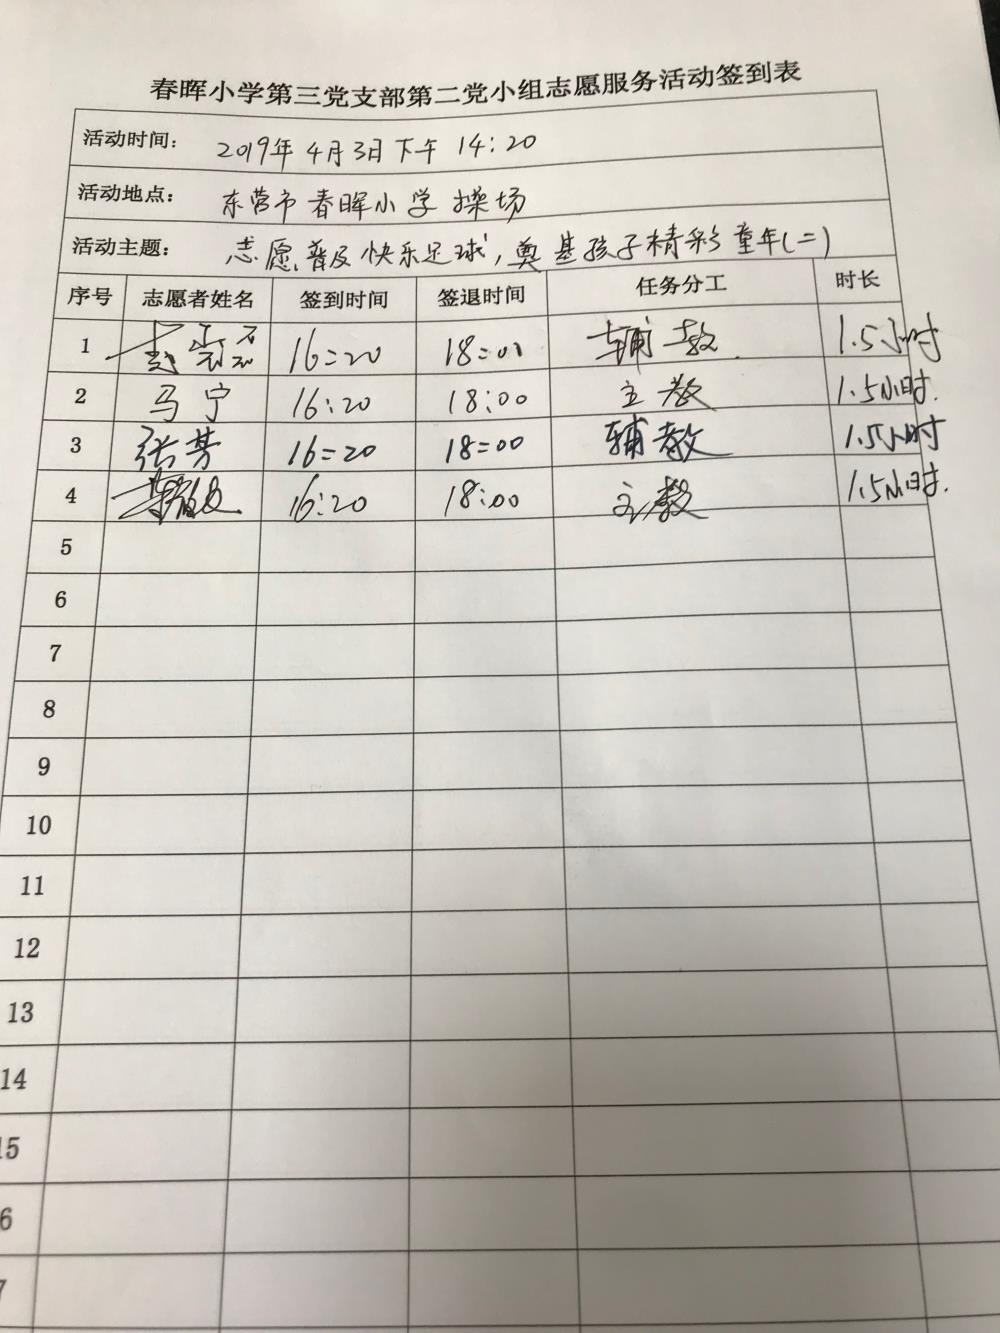 春晖小学第三党支部第二党小组志愿服务活动签到表
活动时间： 2019年4月3日下午 14:20
活动地点： 东营市春晖小学操场
活动主题： 志愿普及快乐足球，奠基孩子精彩童年(二)
序号 志愿者姓名 签到时间 签退时间 任务分工 时长
1 16:20 18:01 辅教 1.5小时
2 马宁 16:20 18:00 主教 1.5小时.
3 张芳 16:20 18:00 辅教 1.5小时
4 16:20 18:00 主教 1.5小时.
5
6
7
8
9
10
11
12
13
14
15
6
7